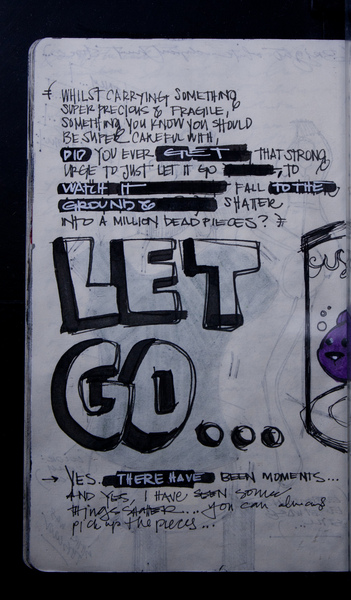 WHILST CARRYING SOMETHING
SUPER PRECIOUS & FRAGILE,
SOMETHING YOU KNOW YOU SHOULD
BE SUPER CAREFUL WITH,
DID YOU EVER GET THAT STRONG
URGE TO JUST LET IT GO, TO
WATCH IT FALL TO THE
GROUND & SHATTER
INTO A MILLION DEAD PIECES?
LET
GO...
→ YES. THERE HAVE BEEN MOMENTS...
AND YES, I HAVE SEEN some
things SHATTER... you can always
pick up the pieces...